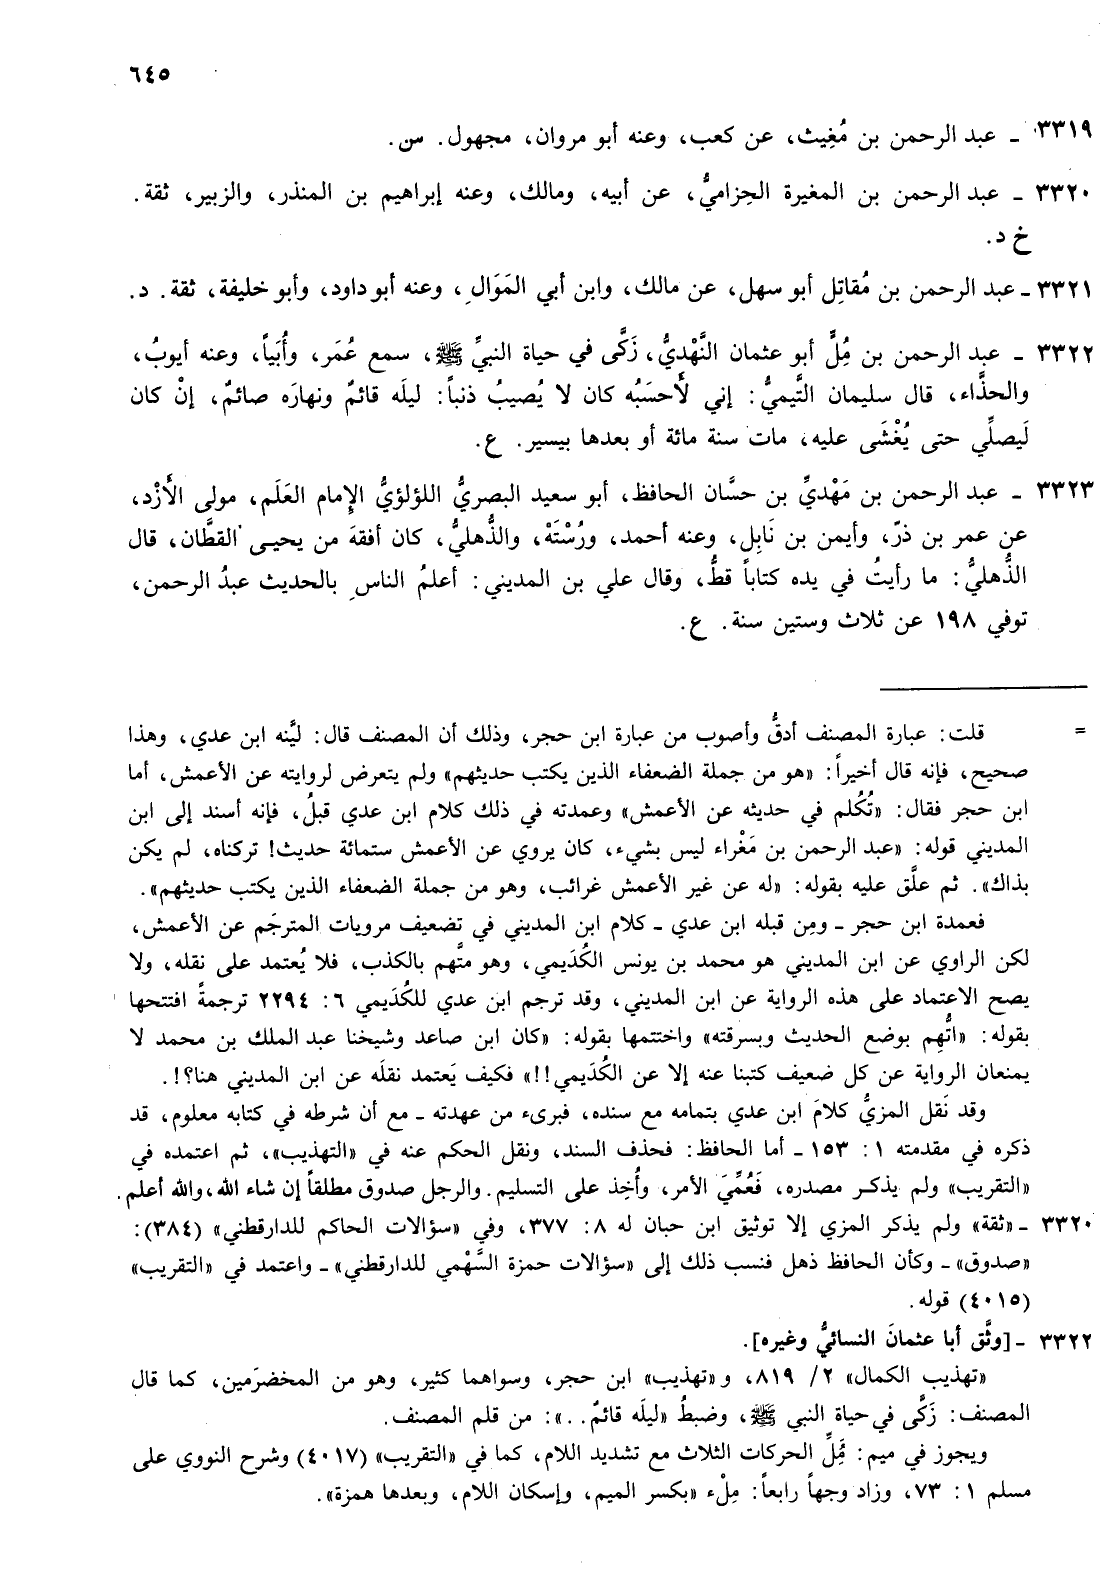 ٦٤٥
٣٣١٩ - عبد الرحمن بن مُغِيث، عن كعب، وعنه أبو مروان، مجهول. سن.
٣٣٢٠ - عبد الرحمن بن المغيرة الحِزاميُّ، عن أبيه، ومالك، وعنه إبراهيم بن المنذر، والزبير، ثقة.
خ د.
٣٣٢١ - عبد الرحمن بن مُقاتِل أبو سهل، عن مالك، وابن أبي المَوَالِ، وعنه أبو داود، وأبو خليفة، ثقة. د.
٣٣٢٢ - عبد الرحمن بن مُِلٍّ أبو عثمان النَّهْديُّ، زَكَّى في حياة النبيِّ ﷺ، سمع عُمَر، وأُبَياً، وعنه أيوبُ،
والحذَّاء، قال سليمان التَّيميُّ: إني لَأحسَبُه كان لا يُصيبُ ذنباً: ليلَه قائمٌ ونهارَه صائمٌ، إنْ كان
لَيصلِّي حتى يُغْشَى عليه، مات سنة مائة أو بعدها بيسير. ع.
٣٣٢٣ - عبد الرحمن بن مَهْديِّ بن حسَّان الحافظ، أبو سعيد البصريُّ اللؤلؤيُّ الإمام العَلَم، مولى الأَزْد،
عن عمر بن ذرّ، وأيمن بن نَابِل، وعنه أحمد، ورُسْتَهْ، والذُّهليُّ، كان أفقهَ من يحيى القطَّان، قال
الذُّهليُّ: ما رأيتُ في يده كتاباً قطُّ، وقال علي بن المديني: أعلمُ الناسِ بالحديث عبدُ الرحمن،
توفي ١٩٨ عن ثلاث وستين سنة. ع.
= قلت: عبارة المصنف أدقُّ وأصوب من عبارة ابن حجر، وذلك أن المصنف قال: ليَّنه ابن عدي، وهذا
صحيح، فإنه قال أخيراً: «هو من جملة الضعفاء الذين يكتب حديثهم» ولم يتعرض لروايته عن الأعمش، أما
ابن حجر فقال: «تُكُلم في حديثه عن الأعمش» وعمدته في ذلك كلام ابن عدي قبلُ، فإنه أسند إلى ابن
المديني قوله: «عبد الرحمن بن مَغْراء ليس بشيء، كان يروي عن الأعمش ستمائة حديث! تركناه، لم يكن
بذاك». ثم علَّق عليه بقوله: «له عن غير الأعمش غرائب، وهو من جملة الضعفاء الذين يكتب حديثهم».
فعمدة ابن حجر - ومِن قبله ابن عدي - كلام ابن المديني في تضعيف مرويات المترجَم عن الأعمش،
لكن الراوي عن ابن المديني هو محمد بن يونس الكُدَيمي، وهو متَّهم بالكذب، فلا يُعتمد على نقله، ولا
يصح الاعتماد على هذه الرواية عن ابن المديني، وقد ترجم ابن عدي للكُدَيمي ٦: ٢٢٩٤ ترجمةً افتتحها
بقوله: «اتُّهِم بوضع الحديث وبسرقته» واختتمها بقوله: «كان ابن صاعد وشيخنا عبد الملك بن محمد لا
يمنعان الرواية عن كل ضعيف كتبنا عنه إلا عن الكُدَيمي!!» فكيف يَعتمد نقلَه عن ابن المديني هنا؟!.
وقد نَقل المزيُّ كلامَ ابن عدي بتمامه مع سنده، فبرىء من عهدته - مع أن شرطه في كتابه معلوم، قد
ذكره في مقدمته ١: ١٥٣ - أما الحافظ: فحذف السند، ونقل الحكم عنه في «التهذيب»، ثم اعتمده في
«التقريب» ولم يذكر مصدره، فَعُمِّيَ الأمر، وأُخِذ على التسليم. والرجل صدوق مطلقاً إن شاء الله، والله أعلم.
٣٣٢٠ - «ثقة» ولم يذكر المزي إلا توثيق ابن حبان له ٨: ٣٧٧، وفي «سؤالات الحاكم للدارقطني» (٣٨٤):
«صدوق» - وكأن الحافظ ذهل فنسب ذلك إلى «سؤالات حمزة السَّهْمي للدارقطني» - واعتمد في «التقريب»
(٤٠١٥) قوله.
٣٣٢٢ - [وثَّق أبا عثمانَ النسائيُّ وغيره].
«تهذيب الكمال» ٢/ ٨١٩، و«تهذيب» ابن حجر، وسواهما كثير، وهو من المخضرَمين، كما قال
المصنف: زَكَّى في حياة النبي ﷺ، وضبطُ «ليلَه قائمٌ..»: من قلم المصنف.
ويجوز في ميم: مَُِلِّ الحركات الثلاث مع تشديد اللام، كما في «التقريب» (٤٠١٧) وشرح النووي على
مسلم ١: ٧٣، وزاد وجهاً رابعاً: مِلْء «بكسر الميم، وإسكان اللام، وبعدها همزة».